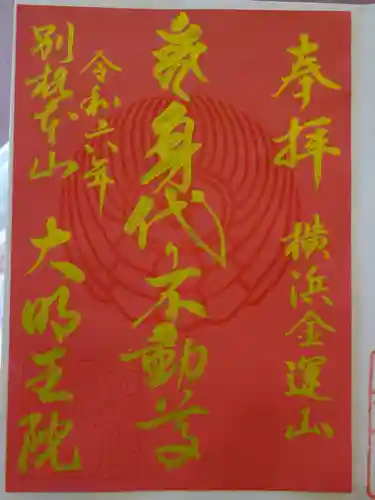 奉拝
横浜金運山
身代り不動尊
令和六年
別格本山
大明王院